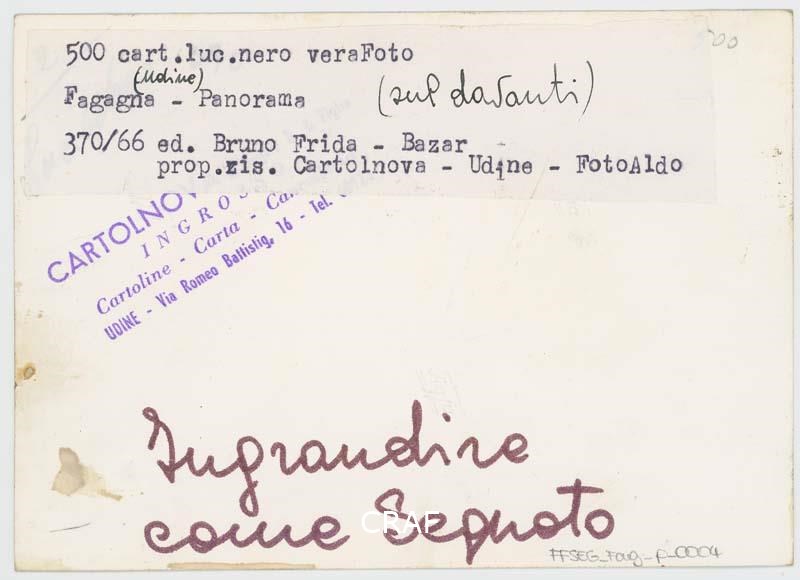 500 cart.luc.nero veraFoto
500
(Udine)
Fagagna - Panorama (sul davanti)
370/66 ed. Bruno Frida - Bazar
prop.ris. Cartolnova - Udine - FotoAldo
CARTOLNOV
INGROS
Cartoline - Carta - Ca
UDINE - Via Romeo Battistig, 16 - Tel.
Ingrandire
come Segnato
CRAF
FFSEG_Fag_P_0004